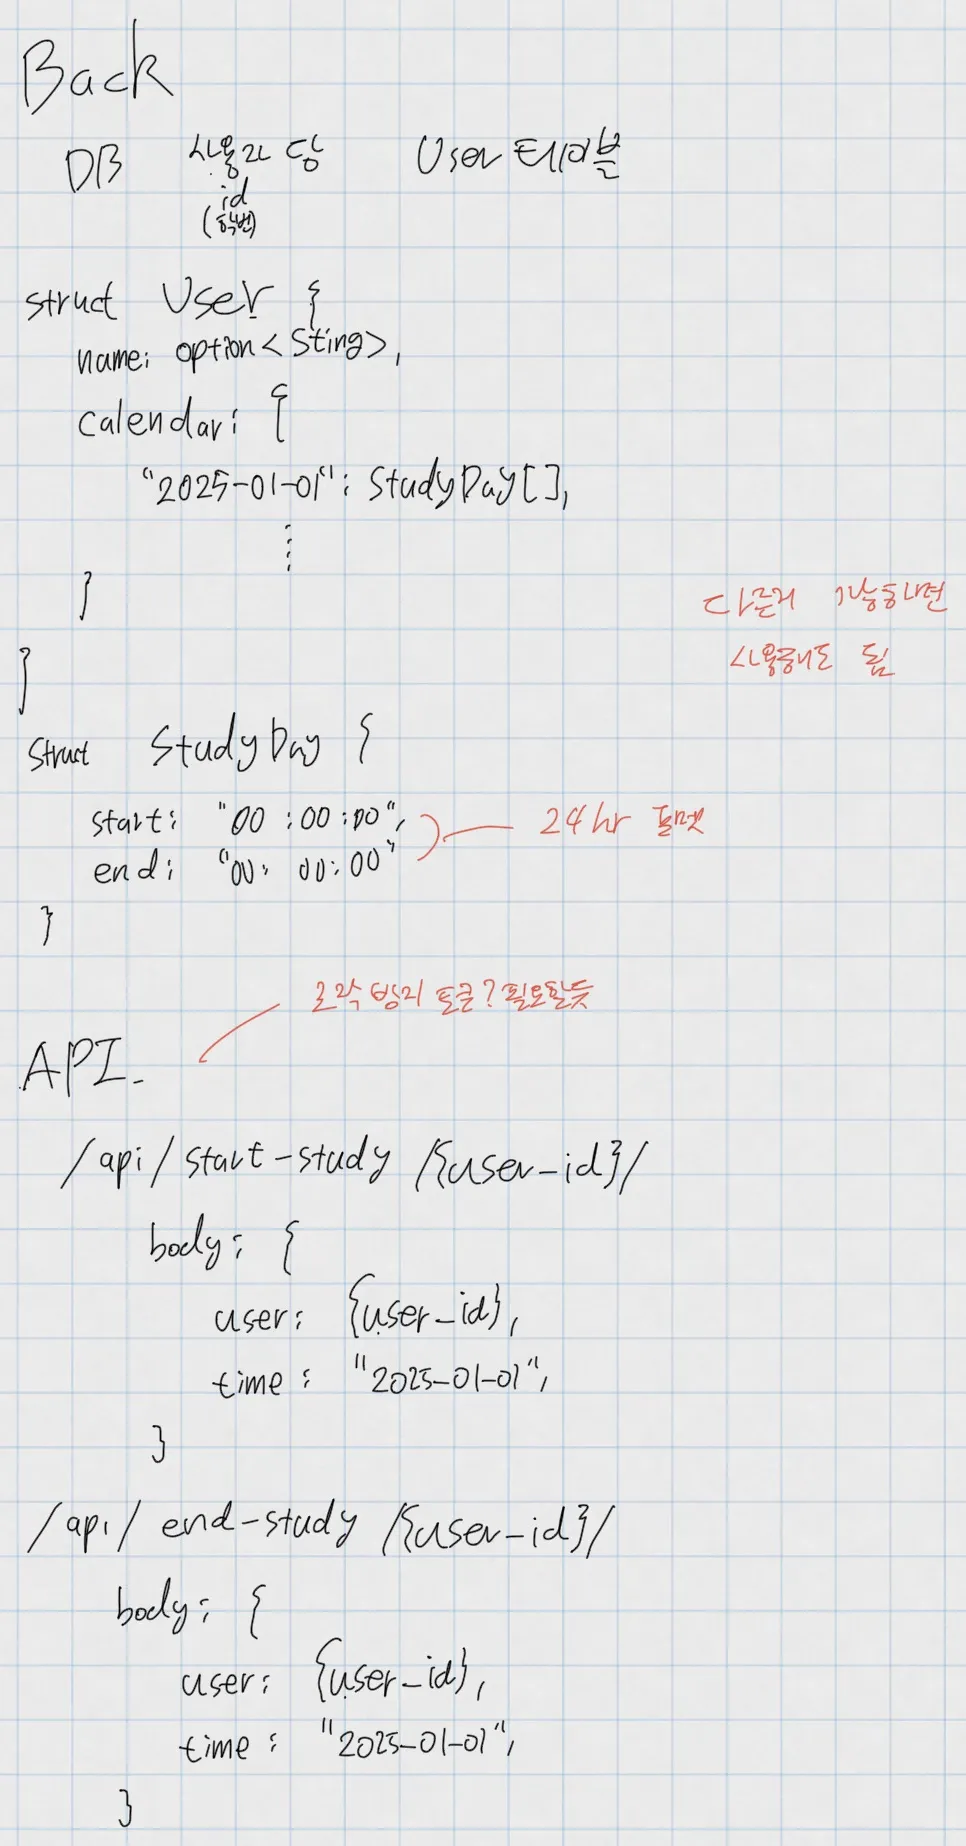 Back
DB 사용자 당 User 테이블
id
(학번)
struct User {
name: option<Sting>,
calendar: {
"2025-01-01": StudyDay[],
⋮
}
다른거 가능하면
사용해도 됨
}
struct StudyDay {
start: "00:00:00",
end: "00:00:00"
24hr 포맷
}
조작 방지 토큰? 필요할듯
API.
/api/start-study/{user_id}/
body: {
user: {user_id},
time: "2025-01-01",
}
/api/end-study/{user_id}/
body: {
user: {user_id},
time: "2025-01-01",
}